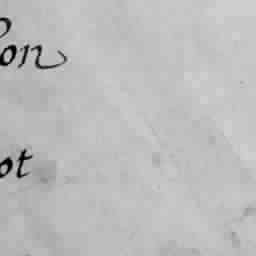 on
ot